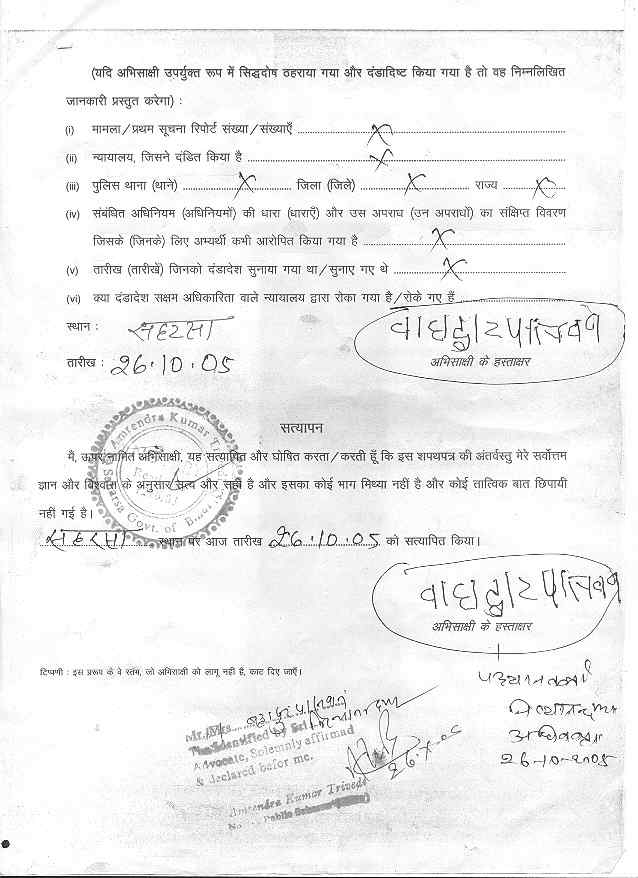 (यदि अभिसाक्षी उपर्युक्त रूप में सिद्धदोष ठहराया गया और दंडादिष्ट किया गया है तो वह निम्नलिखित
जानकारी प्रस्तुत करेगा) :
(i) मामला/प्रथम सूचना रिपोर्ट संख्या/संख्याएँ ........ X ........
(ii) न्यायालय, जिसने दंडित किया है ........ X ........
(iii) पुलिस थाना (थाने) ........ X ........ जिला (जिले) ........ X ........ राज्य ........ X ........
(iv) संबंधित अधिनियम (अधिनियमों) की धारा (धाराएँ) और उस अपराध (उन अपराधों) का संक्षिप्त विवरण
जिसके (जिनके) लिए अभ्यर्थी कभी आरोपित किया गया है ........ X ........
(v) तारीख (तारीखें) जिनको दंडादेश सुनाया गया था/सुनाए गए थे ........ X ........
(vi) क्या दंडादेश सक्षम अधिकारिता वाले न्यायालय द्वारा रोका गया है/रोके गए हैं ........
स्थान : सहरसा
तारीख : 26.10.05
अभिसाक्षी के हस्ताक्षर
Amrendra Kumar T
Saharsa Govt. of
सत्यापन
मैं, ऊपर नामित अभिसाक्षी, यह सत्यापित और घोषित करता/करती हूँ कि इस शपथपत्र की अंतर्वस्तु मेरे सर्वोत्तम
ज्ञान और विश्वास के अनुसार सत्य और सही है और इसका कोई भाग मिथ्या नहीं है और कोई तात्विक बात छिपायी
नहीं गई है।
सहरसा स्थान पर आज तारीख 26.10.05 को सत्यापित किया।
अभिसाक्षी के हस्ताक्षर
टिप्पणी : इस प्ररूप के वे स्तंभ, जो अभिसाक्षी को लागू नहीं हैं, काट दिए जाएँ।
Mr./Mrs
Identified by Sri
Advocate, Solemnly affirmad
& declared befor me.
26.X.05
Amrendra Kumar Trivedi
Public
अधिवक्ता
26-10-2005